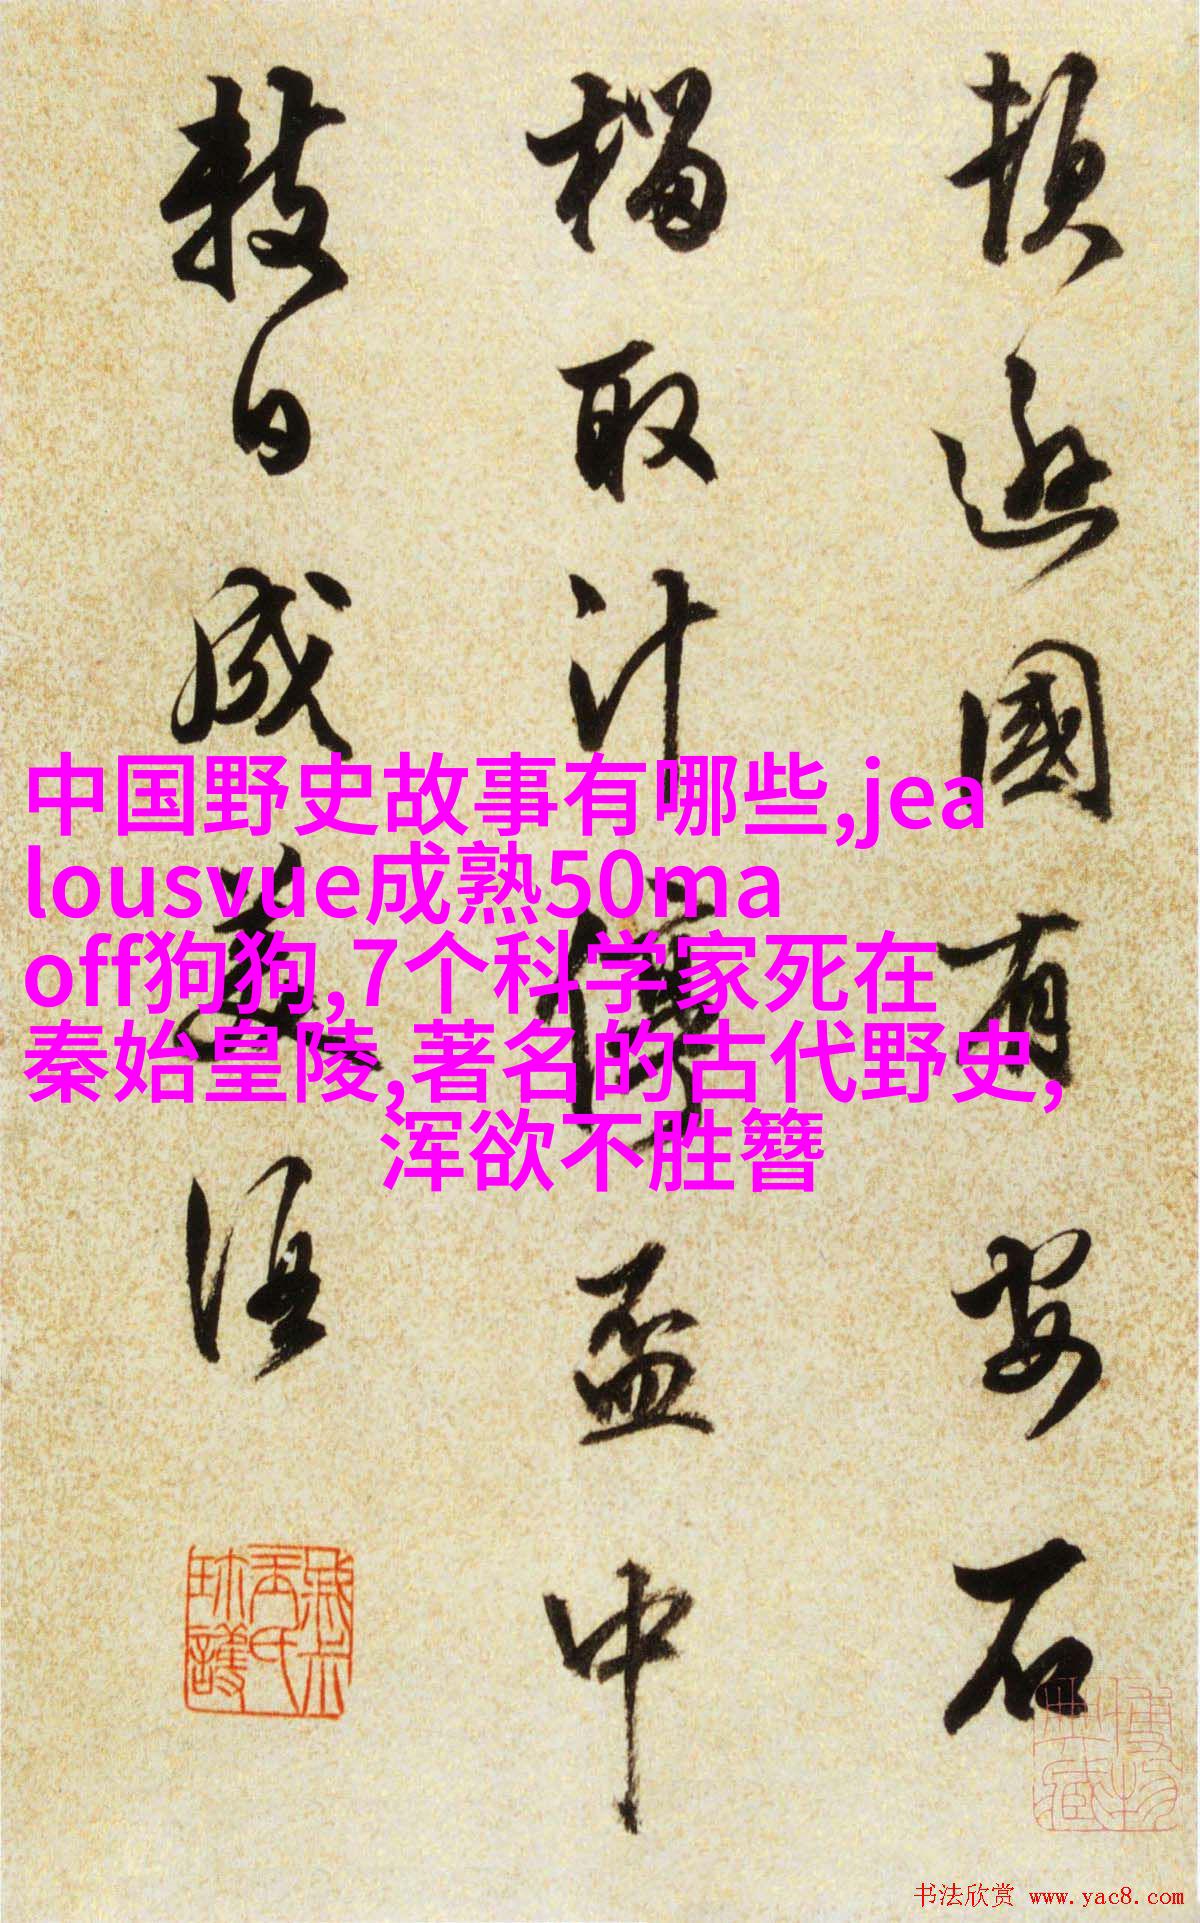 頓遜國有安石
榴取汁停盃中
數日成美酒
中国野史故事有哪些,jea
lousvue成熟50ma
off狗狗,7个科学家死在
秦始皇陵,著名的古代野史,
浑欲不胜簪
书法欣赏 www.yac8.com